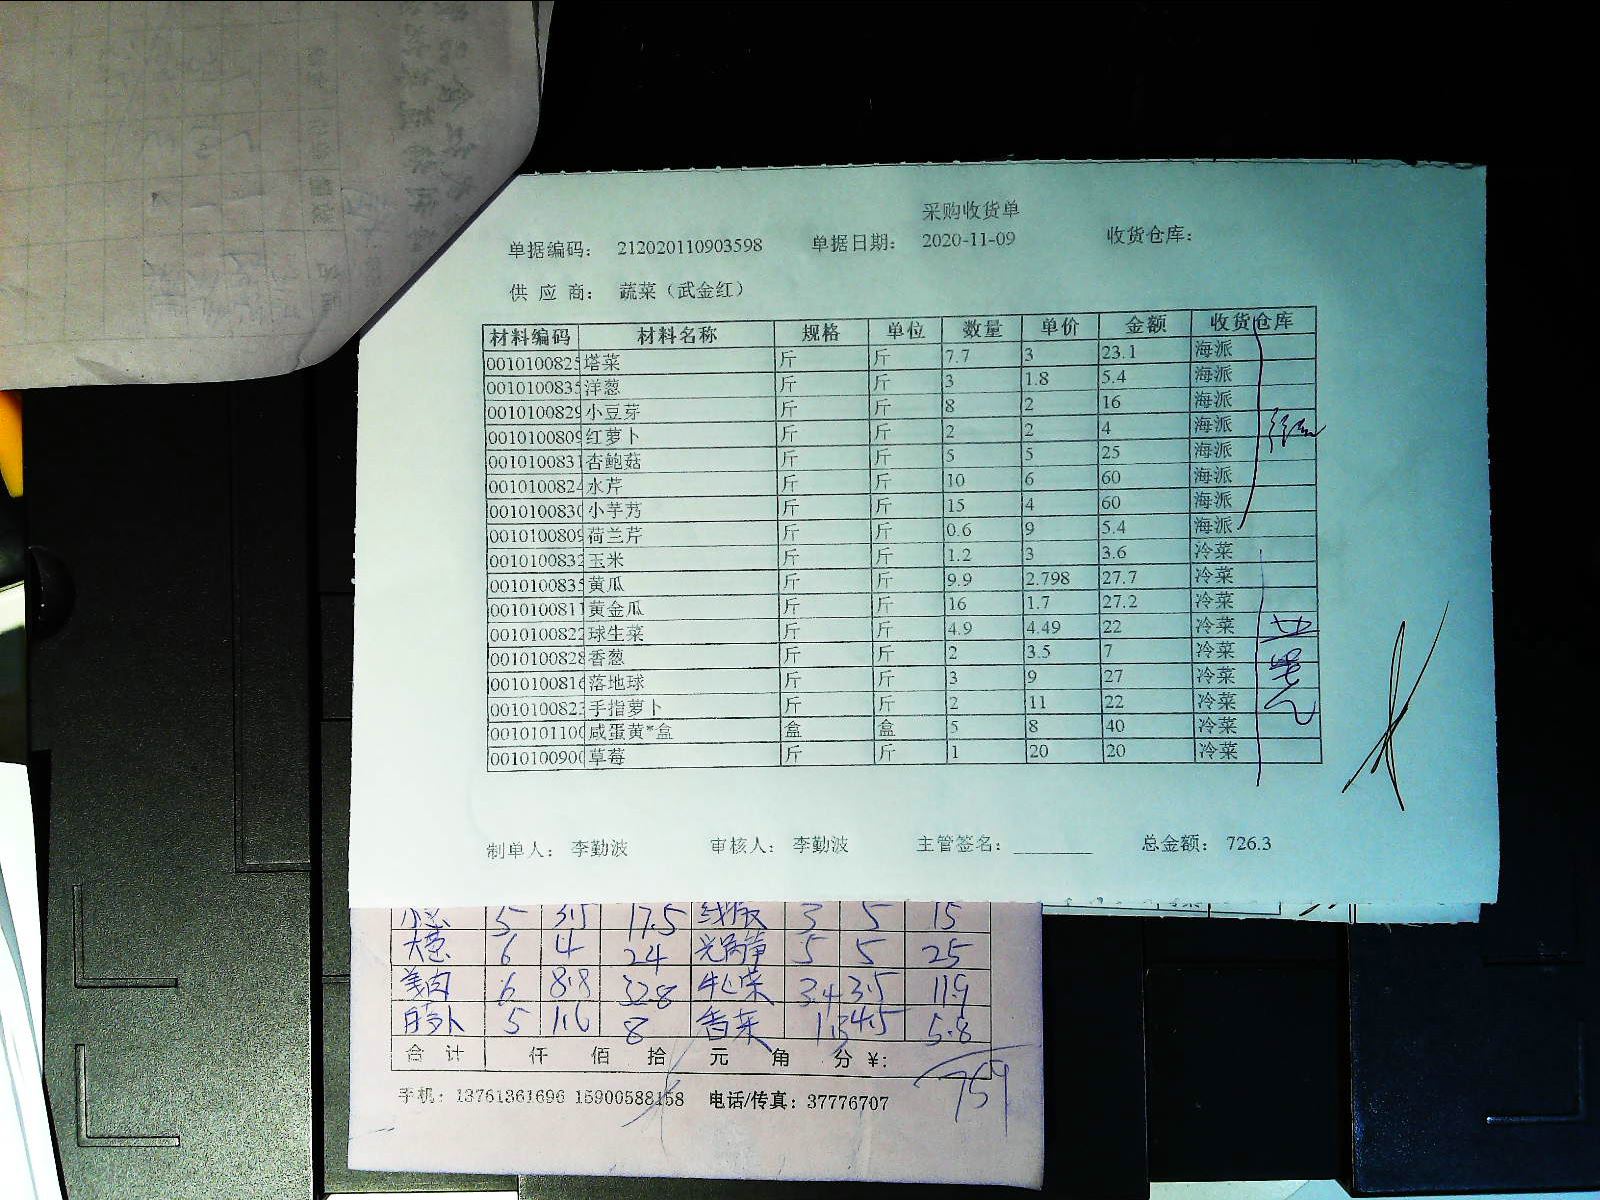 采购收货单
单据编码： 212020110903598 单据日期： 2020-11-09 收货仓库：
供 应 商： 蔬菜（武金红）
材料编码 材料名称 规格 单位 数量 单价 金额 收货仓库
0010100825 塔菜 斤 斤 7.7 3 23.1 海派
0010100835 洋葱 斤 斤 3 1.8 5.4 海派
0010100829 小豆芽 斤 斤 8 2 16 海派
0010100809 红萝卜 斤 斤 2 2 4 海派
0010100831 杏鲍菇 斤 斤 5 5 25 海派
0010100824 水芹 斤 斤 10 6 60 海派
0010100830 小芋艿 斤 斤 15 4 60 海派
0010100809 荷兰芹 斤 斤 0.6 9 5.4 海派
0010100832 玉米 斤 斤 1.2 3 3.6 冷菜
0010100835 黄瓜 斤 斤 9.9 2.798 27.7 冷菜
0010100811 黄金瓜 斤 斤 16 1.7 27.2 冷菜
0010100822 球生菜 斤 斤 4.9 4.49 22 冷菜
0010100828 香葱 斤 斤 2 3.5 7 冷菜
0010100816 落地球 斤 斤 3 9 27 冷菜
0010100823 手指萝卜 斤 斤 2 11 22 冷菜
0010101100 咸蛋黄*盒 盒 盒 5 8 40 冷菜
0010100900 草莓 斤 斤 1 20 20 冷菜
制单人： 李勤波 审核人： 李勤波 主管签名：________ 总金额： 726.3
小葱 5 3.5 17.5 3 5 15
大葱 6 4 24 5 5 25
6 8.8 3.4 3.5 11.9
白萝卜 5 1.6 8 香菜 1.3 4.5 5.8
合 计 仟 佰 拾 元 角 分 ¥:
759
手机：13761361696 15900588158 电话/传真：37776707